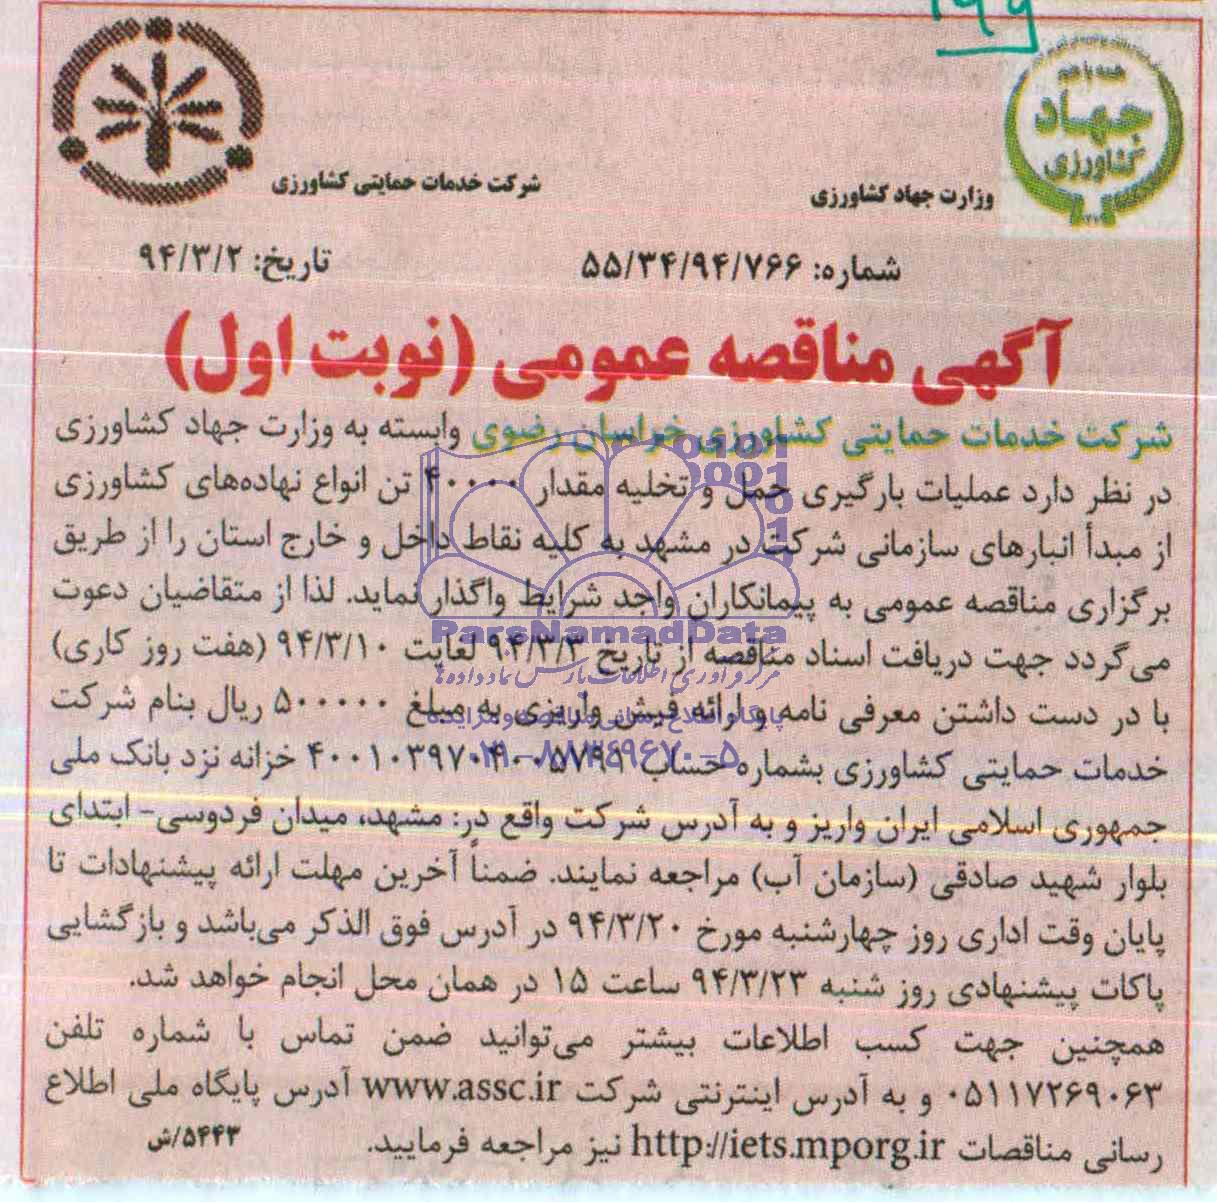 ۱۹۹
همه با هم
جهاد
کشاورزی
وزارت جهاد کشاورزی
شرکت خدمات حمایتی کشاورزی
شماره: ۵۵/۳۴/۹۴/۷۶۶
تاریخ: ۹۴/۳/۲
آگهی مناقصه عمومی (نوبت اول)
شرکت خدمات حمایتی کشاورزی خراسان رضوی وابسته به وزارت جهاد کشاورزی
در نظر دارد عملیات بارگیری حمل و تخلیه مقدار ۴۰۰۰۰ تن انواع نهاده‌های کشاورزی
از مبدأ انبارهای سازمانی شرکت در مشهد به کلیه نقاط داخل و خارج استان را از طریق
برگزاری مناقصه عمومی به پیمانکاران واجد شرایط واگذار نماید. لذا از متقاضیان دعوت
می‌گردد جهت دریافت اسناد مناقصه از تاریخ ۹۴/۳/۳ لغایت ۹۴/۳/۱۰ (هفت روز کاری)
با در دست داشتن معرفی نامه و ارائه فیش واریزی به مبلغ ۵۰۰۰۰۰ ریال بنام شرکت
خدمات حمایتی کشاورزی بشماره حساب خزانه نزد بانک ملی
جمهوری اسلامی ایران واریز و به آدرس شرکت واقع در: مشهد، میدان فردوسی- ابتدای
بلوار شهید صادقی (سازمان آب) مراجعه نمایند. ضمناً آخرین مهلت ارائه پیشنهادات تا
پایان وقت اداری روز چهارشنبه مورخ ۹۴/۳/۲۰ در آدرس فوق الذکر می‌باشد و بازگشایی
پاکات پیشنهادی روز شنبه ۹۴/۳/۲۳ ساعت ۱۵ در همان محل انجام خواهد شد.
همچنین جهت کسب اطلاعات بیشتر می‌توانید ضمن تماس با شماره تلفن
۰۵۱۱۷۲۶۹۰۶۳ و به آدرس اینترنتی شرکت www.assc.ir آدرس پایگاه ملی اطلاع
رسانی مناقصات http://iets.mporg.ir نیز مراجعه فرمایید.
۵۴۴۳/ش
ParsNamadData
مرکز فرآوری اطلاعات پارس نماد داده‌ها
پایگاه اطلاع رسانی مناقصه و مزایده
۰۲۱-۸۸۳۴۹۶۷۰-۵